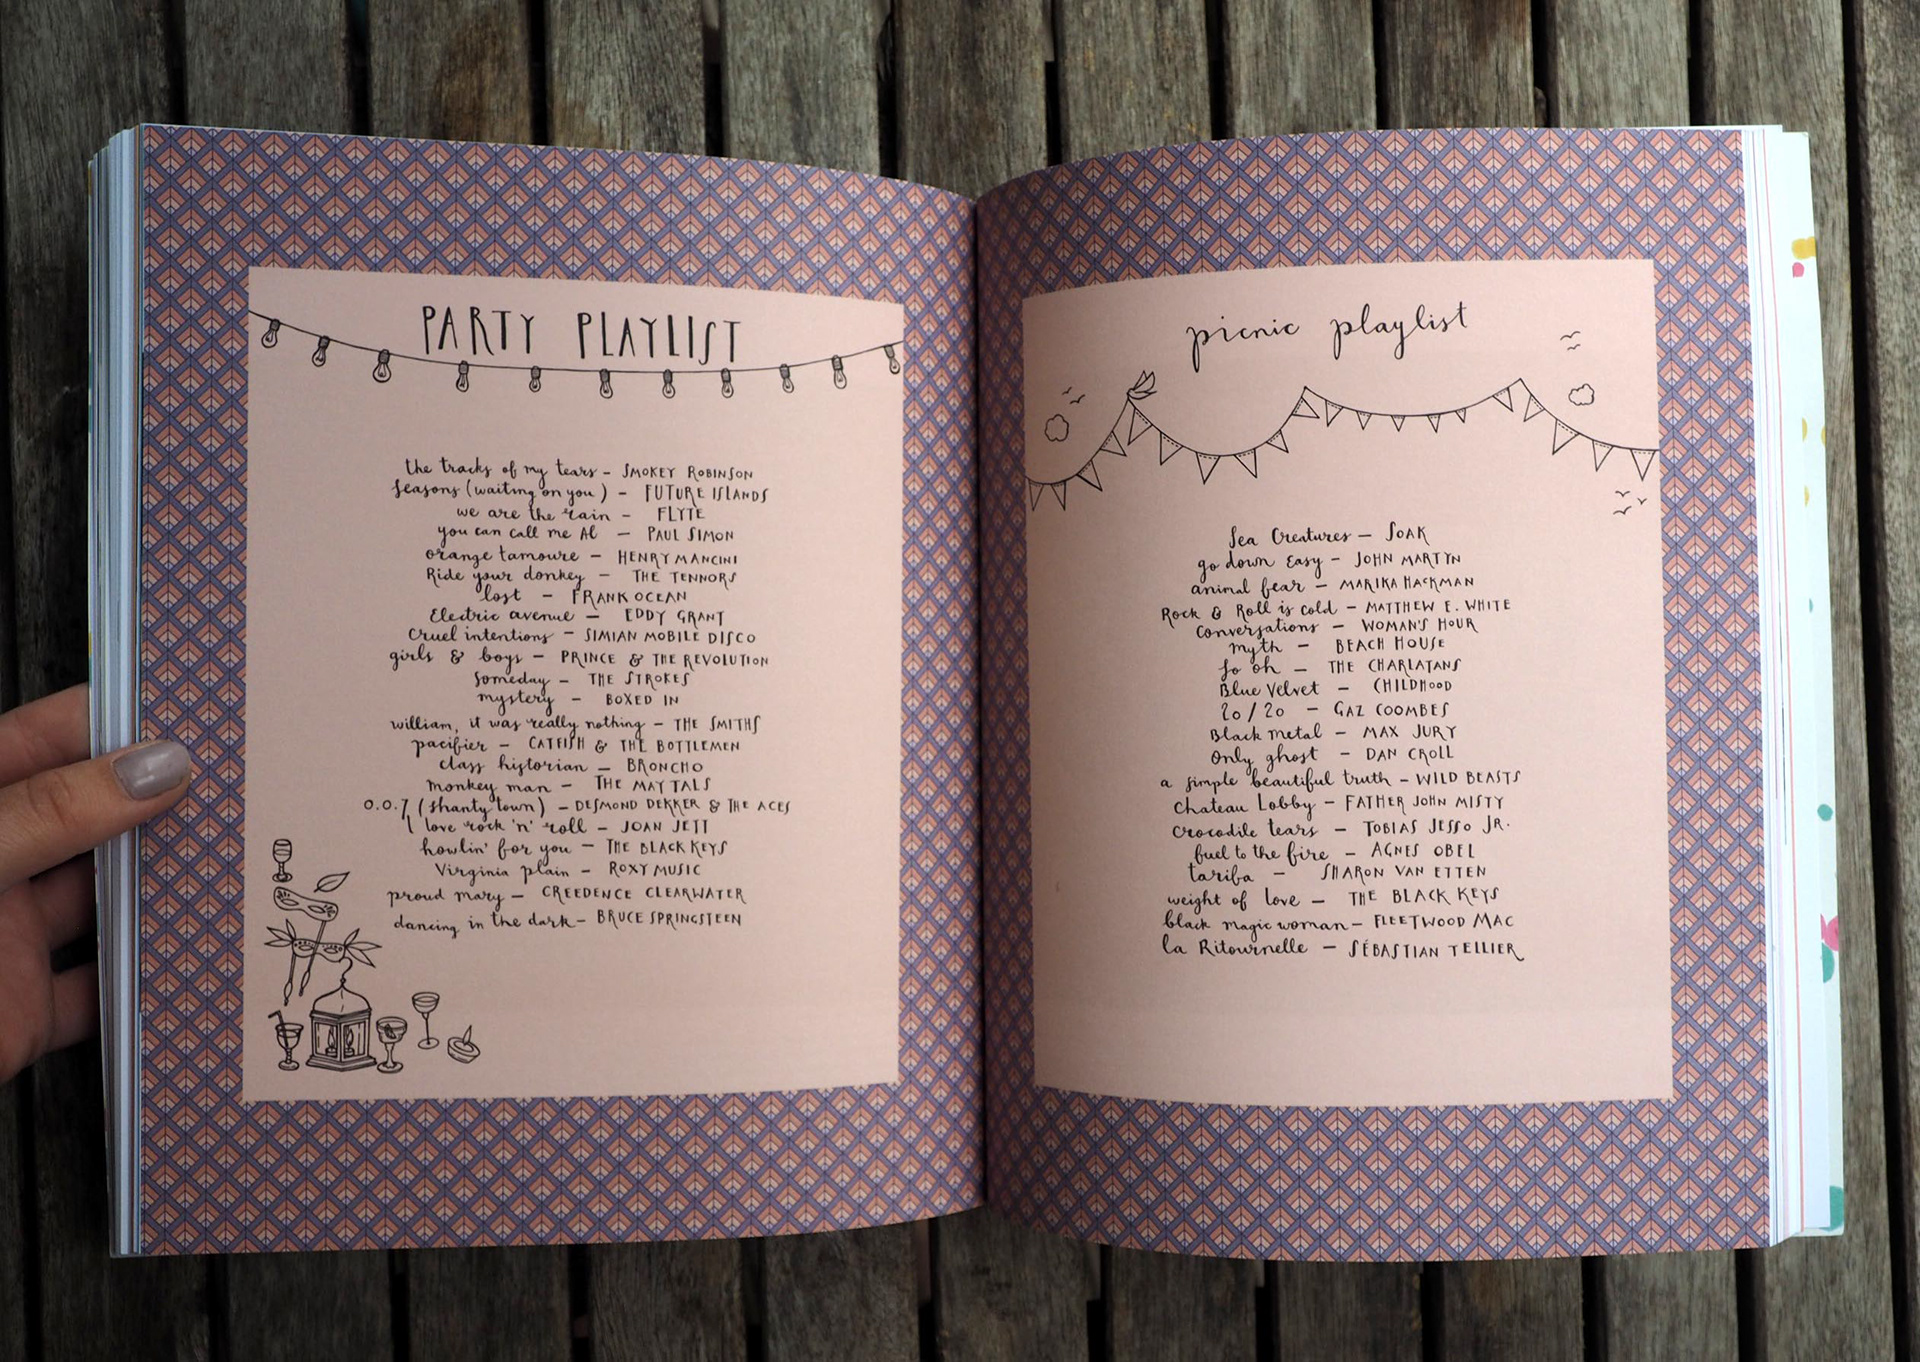 PARTY PLAYLIST
the tracks of my tears – SMOKEY ROBINSON
Seasons (waiting on you) – FUTURE ISLANDS
we are the rain – FLYTE
you can call me Al – PAUL SIMON
orange tamoure – HENRY MANCINI
Ride your donkey – THE TENNORS
lost – FRANK OCEAN
Electric avenue – EDDY GRANT
Cruel intentions – SIMIAN MOBILE DISCO
girls & boys – PRINCE & THE REVOLUTION
Someday – THE STROKES
mystery – BOXED IN
william, it was really nothing – THE SMITHS
pacifier – CATFISH & THE BOTTLEMEN
class historian – BRONCHO
monkey man – THE MAYTALS
0.0.7 (shanty town) – DESMOND DEKKER & THE ACES
I love rock 'n' roll – JOAN JETT
howlin' for you – THE BLACK KEYS
Virginia plain – ROXY MUSIC
proud mary – CREEDENCE CLEARWATER
dancing in the dark – BRUCE SPRINGSTEEN
picnic playlist
Sea Creatures – SOAK
go down Easy – JOHN MARTYN
animal fear – MARIKA HACKMAN
Rock & Roll is cold – MATTHEW E. WHITE
Conversations – WOMAN'S HOUR
myth – BEACH HOUSE
So oh – THE CHARLATANS
Blue Velvet – CHILDHOOD
20/20 – GAZ COOMBES
Black metal – MAX JURY
Only ghost – DAN CROLL
a simple beautiful truth – WILD BEASTS
Chateau Lobby – FATHER JOHN MISTY
Crocodile tears – TOBIAS JESSO JR.
fuel to the fire – AGNES OBEL
tarifa – SHARON VAN ETTEN
weight of love – THE BLACK KEYS
black magic woman – FLEETWOOD MAC
la Ritournelle – SÉBASTIAN TELLIER